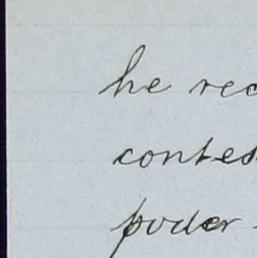 he rec
contes
poder